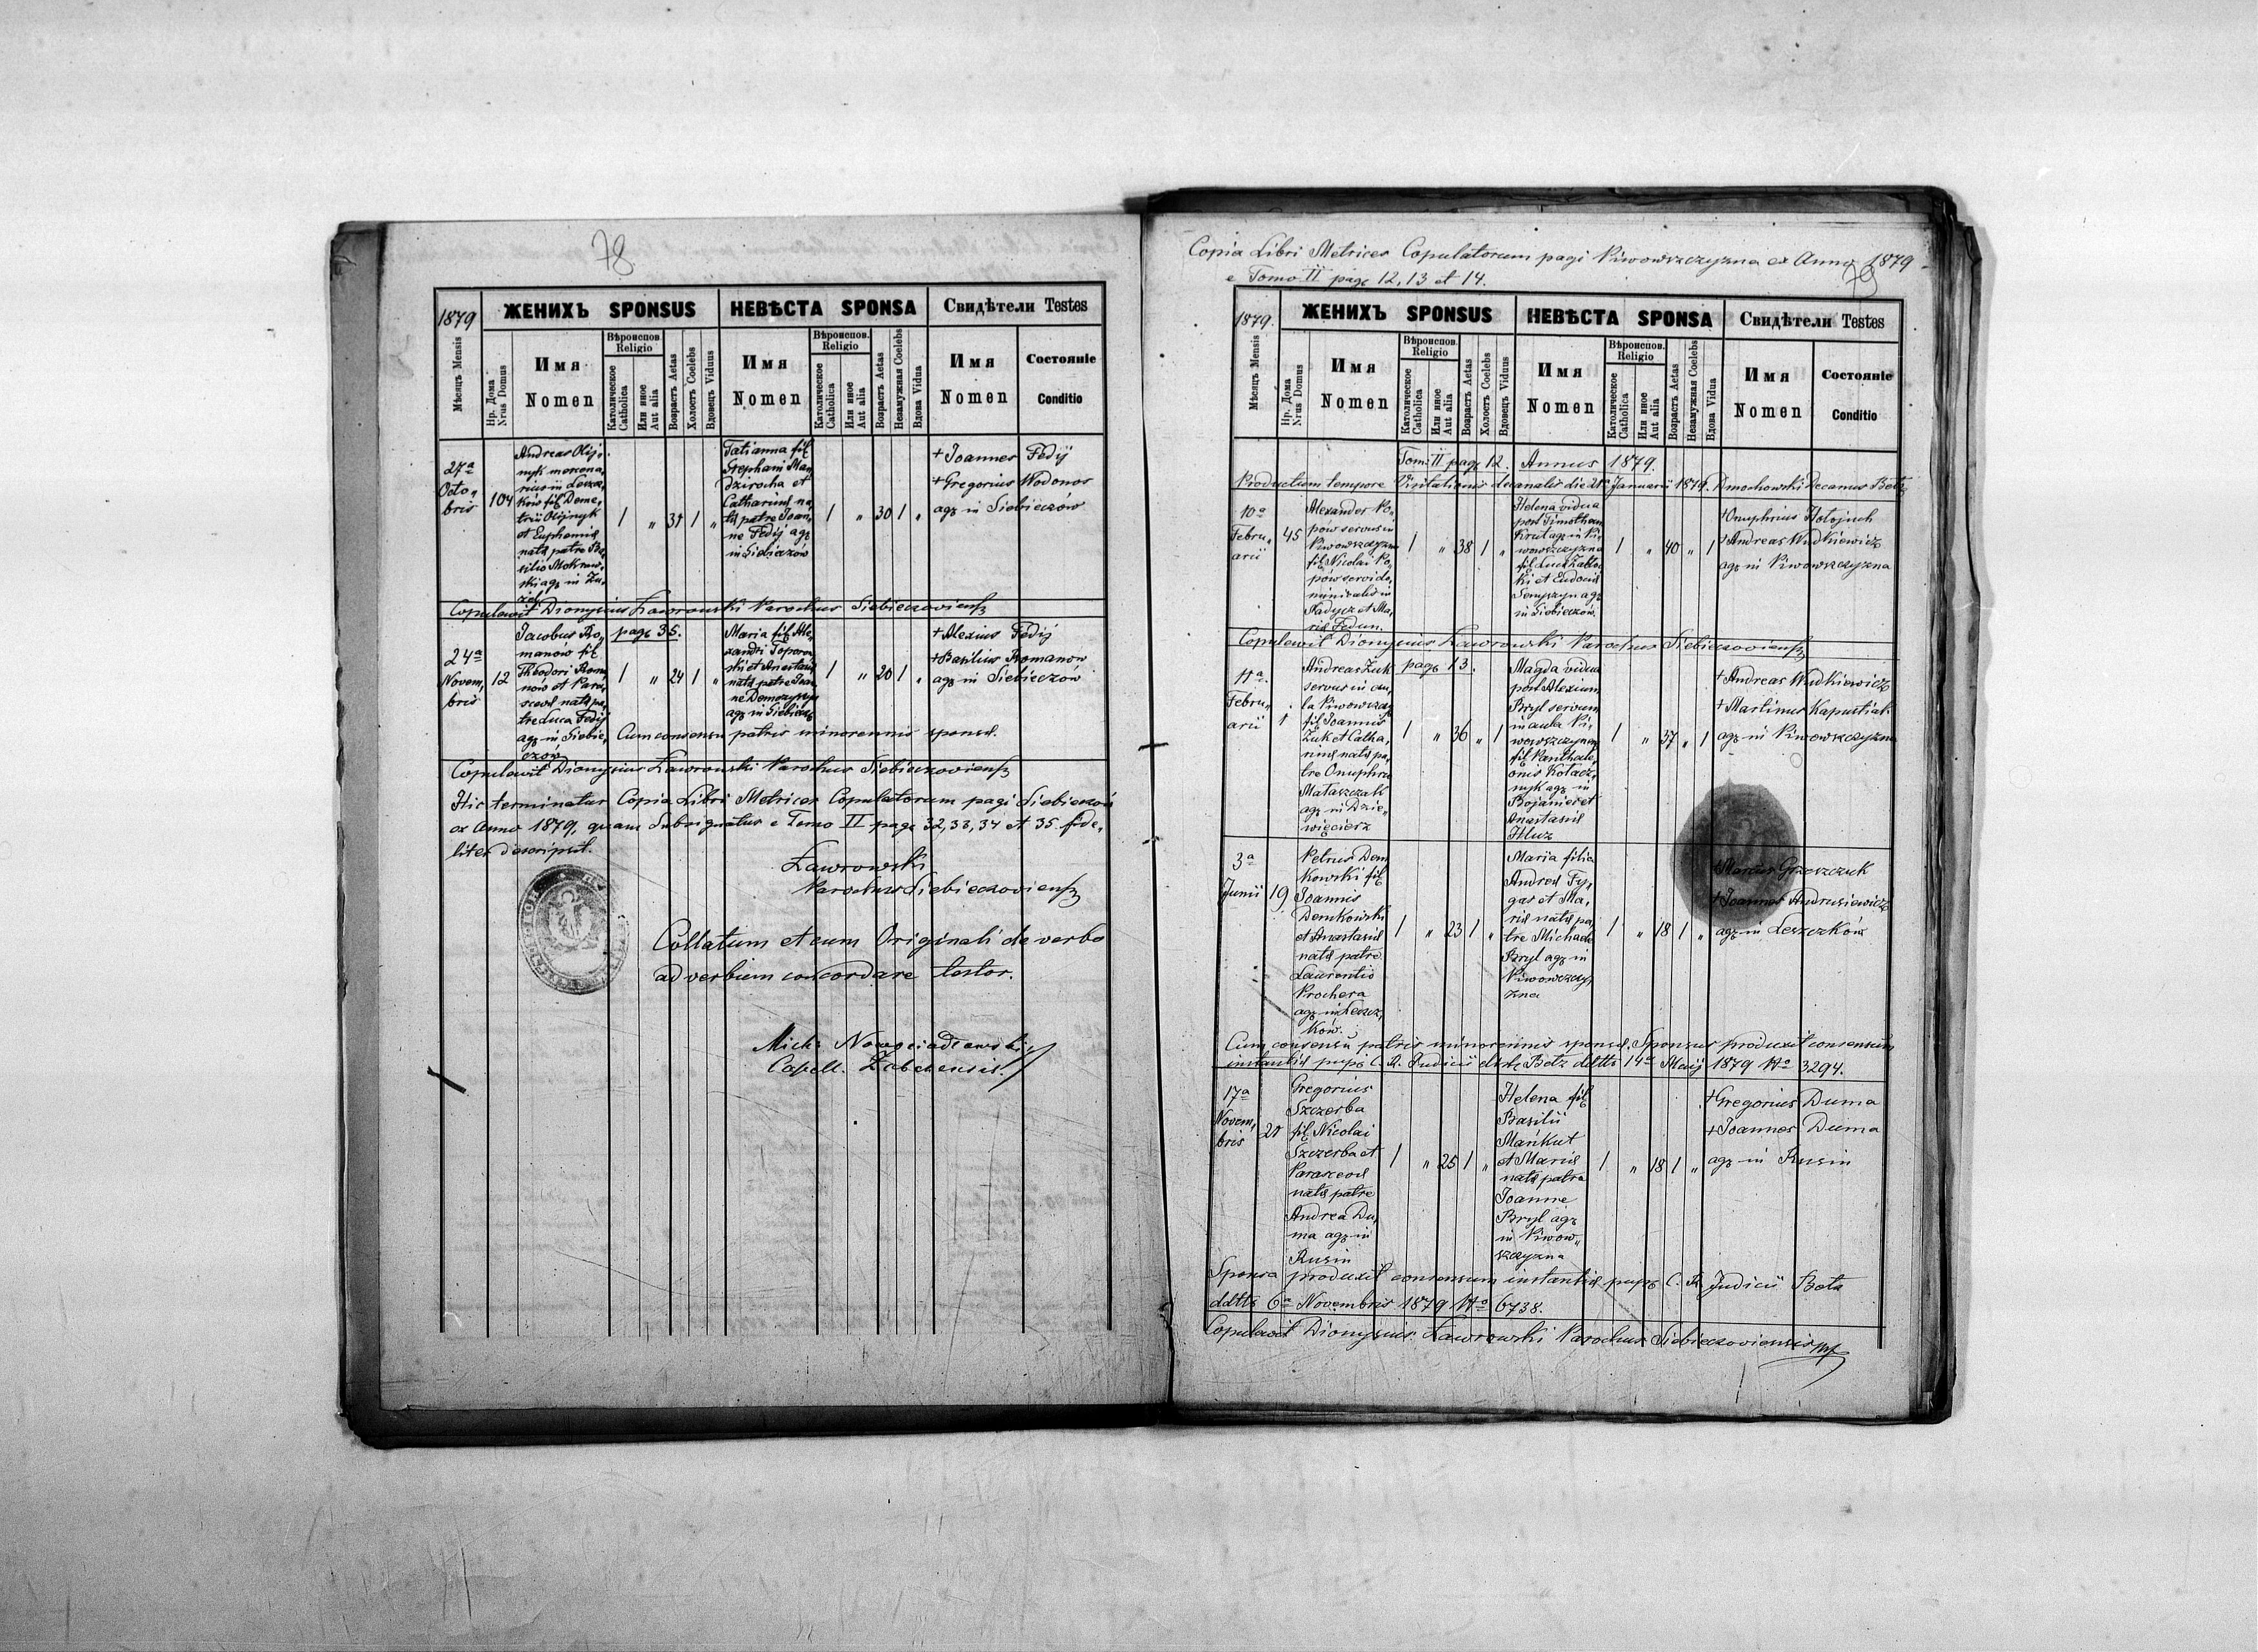 78
1879
ЖЕНИХЪ SPONSUS
НЕВѢСТА SPONSA
Свидѣтели Testes
Мѣсяцъ Mensis
Нр. Дома Nrus Domus
Имя Nomen
Вѣроиспов. Religio
Католическое Catholica
Или иное Aut alia
Возрастъ Aetas
Холостъ Coelebs
Вдовецъ Viduus
Имя Nomen
Вѣроиспов. Religio
Католическое Catholica
Или иное Aut alia
Возрастъ Aetas
Незамужная Coelebs
Вдова Vidua
Имя Nomen
Состояніе Conditio
27a
Octo„
bris
104
Andreas Olij„
nyk mercena„
rius in Leszcz„
ków fil Deme„
trii Olijnyk
et Euphemiæ
natæ patre Ba„
silio Mokrow„
ski agr in Żu„
żel
1 „ 31 1 „
Tatianna fil
Stephani Man
dzirocha et
Catharinæ na„
tæ patre Joan„
ne Fedij agr
in Siebieczów
1 „ 30 1 „
+ Joannes Fedij
+ Gregorius Wodonos
agr in Siebieczów
Copulavit Dionysius Ławrowski Parochus Siebieczoviens
24a
Novem„
bris
12
Jacobus Ro„
manów fil
Theodori Roma„
nów et Para„
scevæ natæ pa„
tre Luca Fedij
agr in Siebie„
czów
page 35.
1 „ 24 1 „
Maria fil Ale„
xandri Toporow„
ski et Anastasiæ
natæ patre Joan„
ne Demczyszyn
agr in Siebiecz
1 „ 20 1 „
+ Alexius Fedij
+ Basilius Romanów
agr in Siebieczów
Cum consensu patris minorennis sponsæ.
Copulavit Dionysius Ławrowski Parochus Siebieczoviens
Hic terminatur Copia Libri Metrices Copulatorum pagi Siebieczów
ex Anno 1879, quam Subsignatus e Tomo II page 32, 33, 34 et 35 fide„
liter descripsit.
Ławrowski
Parochus Siebieczoviens
Collatum et cum Originali de verbo
ad verbum concordare testor.
Mich:
Capell.
Copia Libri Metrices Copulatorum pagi Piwowszczyzna ex Anno 1879
e Tomo II page 12, 13 et 14.
79
1879.
ЖЕНИХЪ SPONSUS
НЕВѢСТА SPONSA
Свидѣтели Testes
Мѣсяцъ Mensis
Нр. Дома Nrus Domus
Имя Nomen
Вѣроиспов. Religio
Католическое Catholica
Или иное Aut alia
Возрастъ Aetas
Холостъ Coelebs
Вдовецъ Viduus
Имя Nomen
Вѣроиспов. Religio
Католическое Catholica
Или иное Aut alia
Возрастъ Aetas
Незамужная Coelebs
Вдова Vidua
Имя Nomen
Состояніе Conditio
Tom: II page 12. Annus 1879.
Productum tempore Visitationis decanalis die Januarii 1879. Dmochowski Decanus Betz
10a
Febru„
arii
45
Alexander Po„
pów servus in
Piwowszczyzna
fil Nicolai Po„
pów servi do„
minicalis in
Nadycz et Ma„
riæ Fedun.
1 „ 38 1 „
Helena vidua
post Timotheum
Krut agr in Pi„
wowszczyzna
fil Lucæ Zabłoc„
ki et Eudociæ
Senyszyn agr
in Siebieczów.
1 „ 40 „ 1
+ Onuphrius Hołojuch
+ Andreas Wudkiewicz
agr in Piwowszczyzna
Copulavit Dionysius Ławrowski Parochus Siebieczoviens
11a
Febru„
arii
1
Andreas Żuk
servus in au„
la Piwowszcz
fil Joannis
Żuk et Catha„
rinæ natæ pa„
tre Onuphrio
Mataszczak
agr in Dzie„
więcierz
page 13.
1 „ 36 „ 1
Magda vidua
post Alexium
Bryl servum
in aula Pi„
wowszczyzna
fil Panthale„
onis Kołacz„
nyk agr in
Bojanice et
Anastasiæ
Hluz
1 „ 37 „ 1
+ Andreas Wudkiewicz
+ Martinus Kapustiak
agr in Piwowszczyzna
3a
Junii
19
Petrus Dem
kowski fil
Joannis
Demkowski
et Anastasiæ
natæ patre
Laurentio
Prochera
agr in Leszcz„
ków.
1 „ 23 1 „
Maria filia
Andreæ Ty„
gas et Ma„
riæ natæ pa„
tre Michaele
Bryl agr in
Piwowszczy„
zna
1 „ 18 1 „
+ Marcus Grzeszczuk
+ Joannes Andrusiewicz
agr in Leszczków
Cum consensu patris minorennis sponsæ, Sponsus produxit consensum
instantiæ pup C. R. Judicii Betz ddtto 14a Maij 1879 No 3294.
17a
Novem„
bris
20
Gregorius
Szczerba
fil Nicolai
Szczerba et
Parascevæ
natæ patre
Andrea Du„
ma agr in
Rusin
1 „ 25 1 „
Helena fil
Basilii
Mańkut
et Mariæ
natæ patre
Joanne
Bryl agr
in Piwow„
szczyzna
1 „ 18 1 „
+ Gregorius Duma
+ Joannes Duma
agr in Rusin
Sponsa produxit consensum instantiæ pup C. R. Judicii Betz
ddtto 6a Novembris 1879 No 6738.
Copulavit Dionysius Ławrowski Parochus Siebieczoviensis